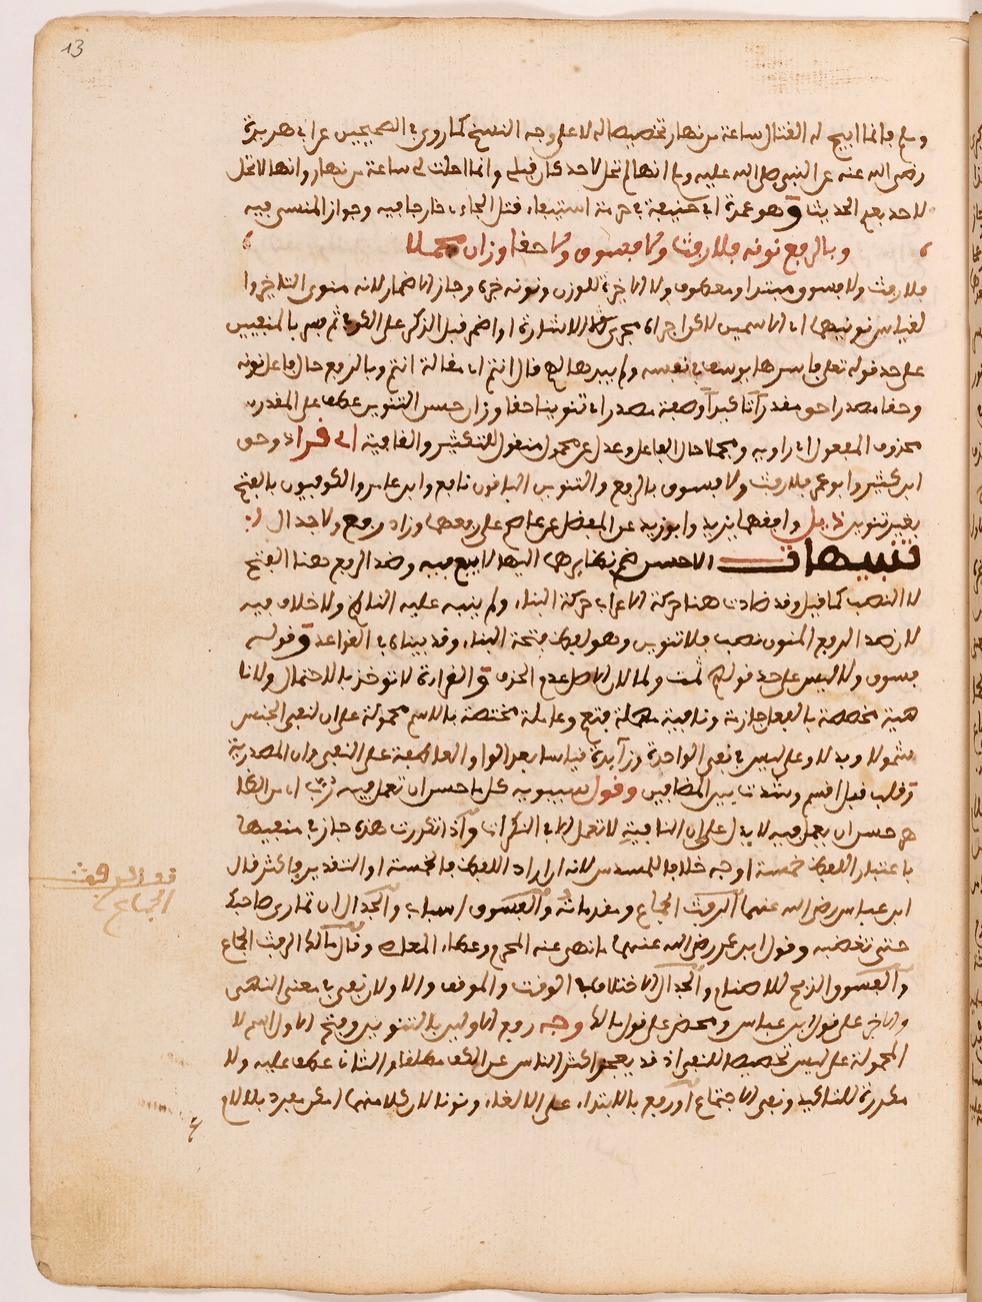 13
وسلم فانما ابيح له القتال ساعة من نهار تخصيصا له لا على وجه النسخ كما روى في الصحيحين عن ابي هريرة
رضى الله عنه عن النبي صلى الله عليه وسلم انها لم تحل لاحد كان قبلى وانما احلت لى ساعة من نهار وانها لا تحل
لاحد بعدى الحديث وهو عمدة ابى حنيفة في حرمة استيفاء قتل الجاني خارجا فيه وجواز المنسى فيه
وبالرفع نونه فلا رفث ولا فسوق ولا حقا وزان مجملا
فلا رفث ولا فسوق مبتدا ومعطوف ولا الاخرة للوزن ونونه خبره وجاز الاضمار لانه منوى التاخير
على حد قوله تعلى فاسرها يوسف في نفسه ولم يبدها لهم قال انتم اى مقالة انتم وبالرفع حال فاعل نونه
وحقا مصدر احق مقدرا او صفة مصدر اى تنوينا حقا وزان حسن التنوين عطف على المقدر
محذوف المفعول اى راويه ومجملا حال الفاعل وعدل عن محمول منقول للتكثير والقافية اى قرا ذو حق
ابن كثير وابو عمرو فلا رفث ولا فسوق بالرفع والتنوين الباقون نافع وابن عامر والكوفيون بالفتح
بغير تنوين وافقهما يزيد وابو زيد عن المفضل عن عاصم على رفعهما وزاد رفع ولا جدال
تنبيهات الاحسن ضم نظايرهما اليهما لا بيع فيه وضد الرفع هنا الفتح
لا النصب كما قيل وقد ضادت هنا حركة الاعراب حركة البناء ولم ينبه عليه الناظم ولا خلاف فيه
لان ضد الرفع المنون نصب فلا تنوين وهو لفظ فتحة البناء وقد بيناه في القواعد وقوله
فسوق ولا ليس على حد قولهم لمت ولما لان الاصل عدم الحذف والقراءة لا توخذ بالاحتمال ولانا
هية مخصصة بالفعل جازمة ونافية مهملة فتح وعاملة مختصة بالاسم محمولة على ان لنفى الجنس
شمولا وبدلا وعلى ليس في نفى الواحدة وزايدة قياسا بعد الواو العاطفة على النفى وان المصدرية
وقلب قبل اقسم وشذت بين المضافين وقول سيبويه كل ما حسن ان تعمل فيه رب
حسن ان يعمل فيه لا يدل على ان النافية لا تعمل الا في النكرات واذا تكررت هذه جاز في منفيها
باعتبار اللفظ خمسة اوجه خلافا للمسدس لانه ان اراد اللفظ فالخمسة او التقدير فاكثر قال
ابن عباس رضى الله عنهما الرفث الجماع ومقدماته والفسوق السباب والجدال ان تمارى صاحبك
حتى تغضبه وقول ابن عمر رضى الله عنهما ما نهى عنه المحرم وعطاء المعاصى وقال مالك الرفث الجماع
والفسوق الذبح للاصنام والجدال الاختلاف في الوقت والموقف والاولان نفى بمعنى النهى
والاخر على قول ابن عباس ومحض على قول مالك وجه رفع الاولين بالتنوين وفتح الاول اسم لا
المحمولة على ليس تخصيصا للنفى اذ قد يعجز اكثر الناس عن الكف مطلقا والثانى عطف عليه ولا
مكررة للتاكيد ونفى الاجتماع او رفع بالابتداء على الالغاء ونونا لان كلا منهما امكن مفرد بلا لام
الرفث
الجماع